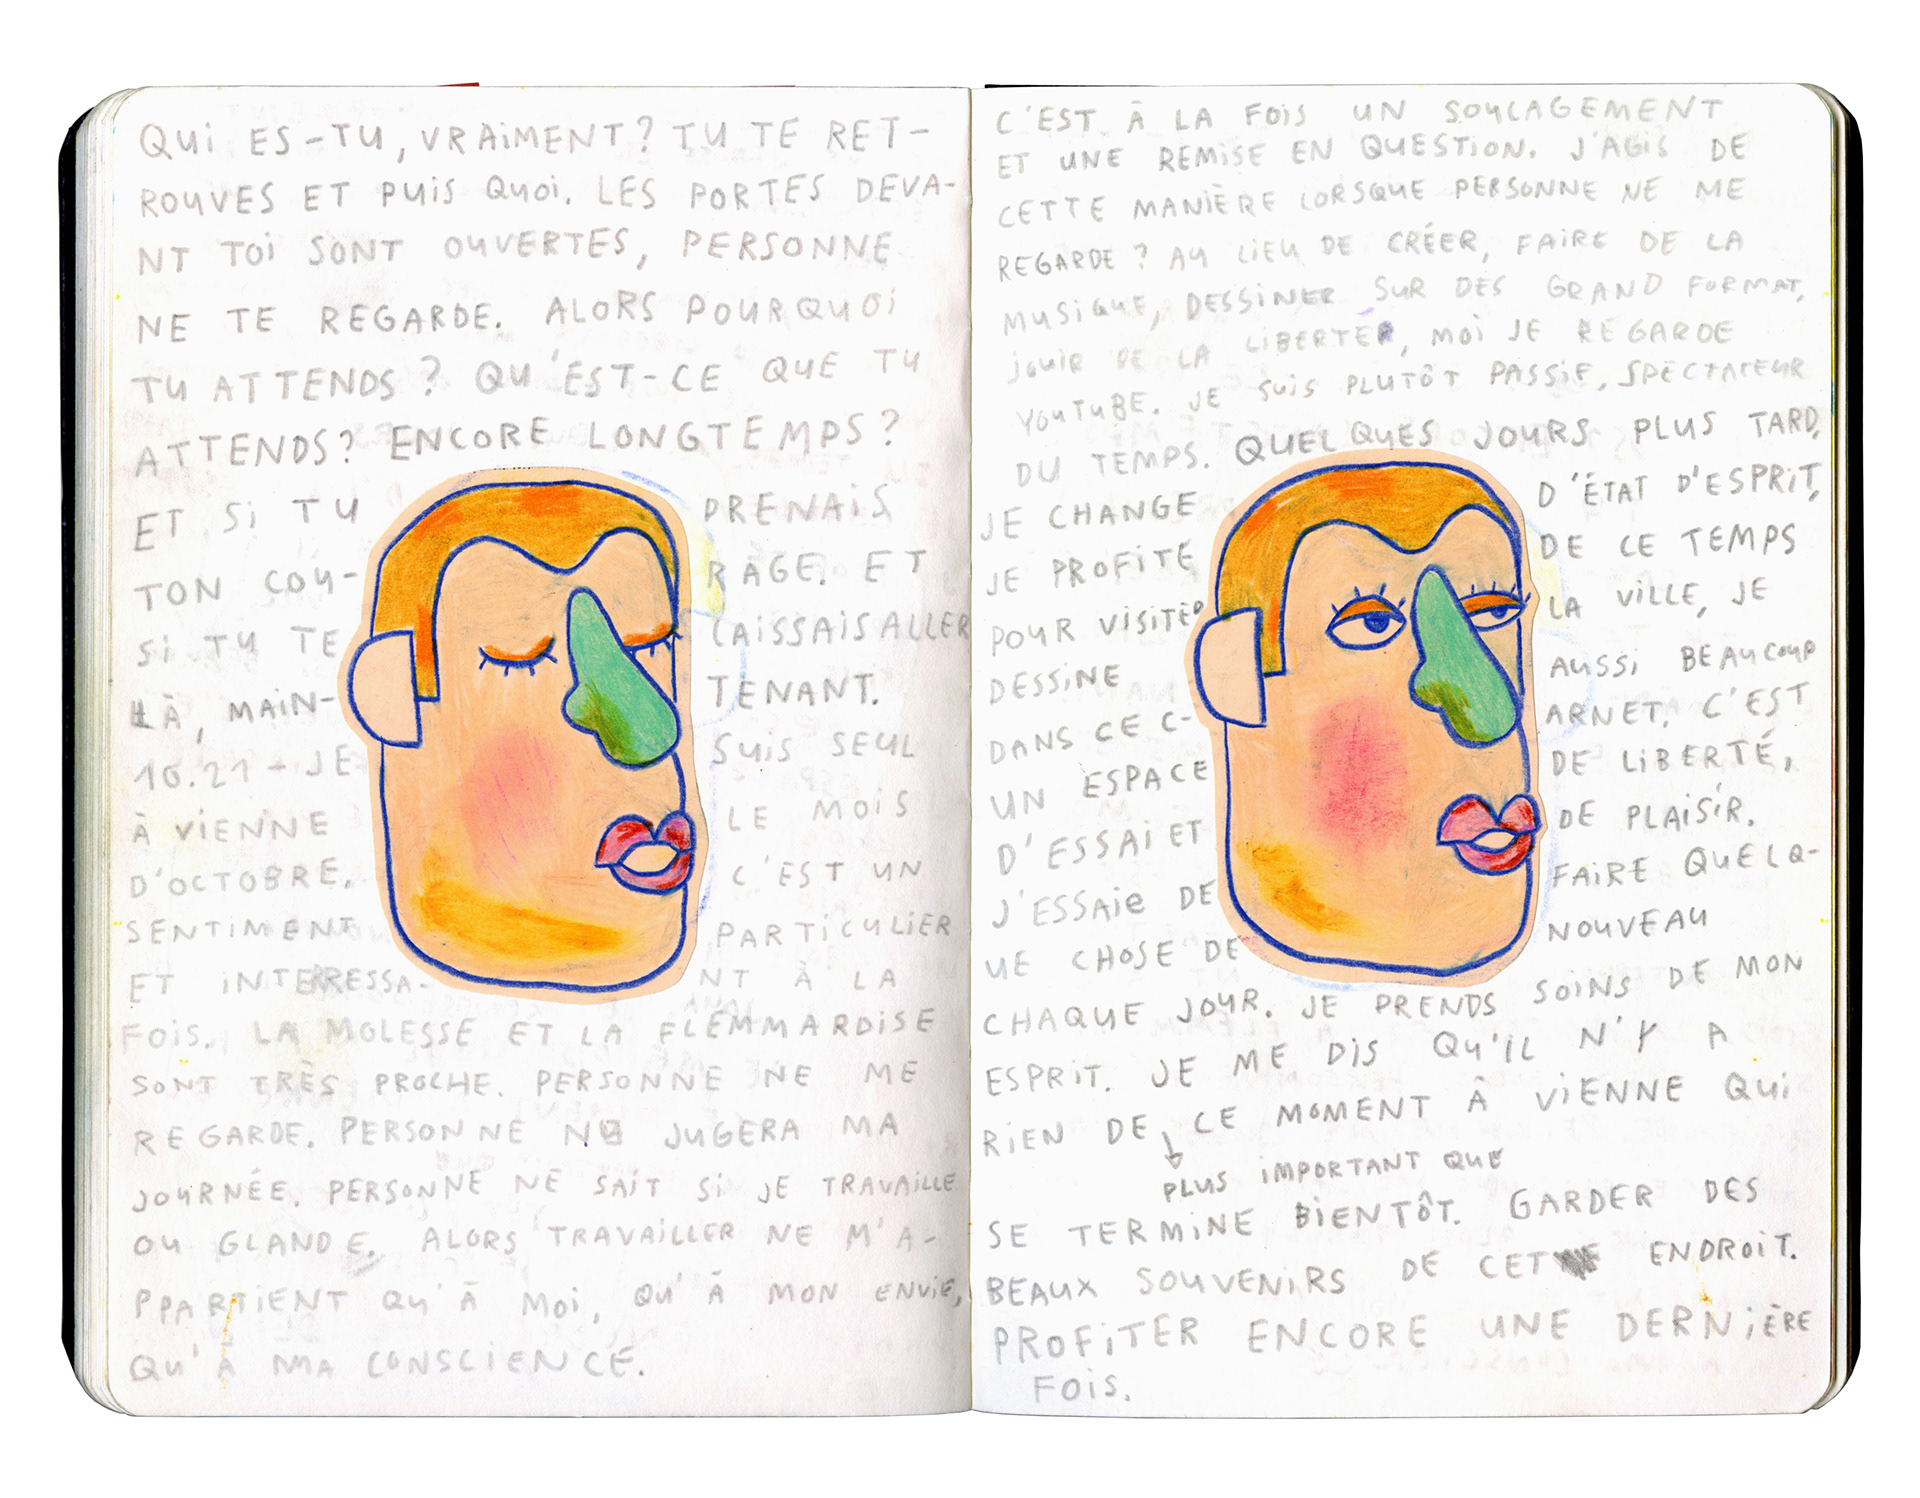 QUI ES-TU, VRAIMENT? TU TE RET-
ROUVES ET PUIS QUOI. LES PORTES DEVA-
NT TOI SONT OUVERTES, PERSONNE
NE TE REGARDE. ALORS POURQUOI
TU ATTENDS? QU'EST-CE QUE TU
ATTENDS? ENCORE LONGTEMPS?
ET SI TU PRENAIS
TON COU- RAGE. ET
SI TU TE LAISSAIS ALLER
LÀ, MAIN- TENANT.
10.21 - JE SUIS SEUL
À VIENNE LE MOIS
D'OCTOBRE. C'EST UN
SENTIMENT PARTICULIER
ET INTERESSA- NT À LA
FOIS. LA MOLESSE ET LA FLEMMARDISE
SONT TRÈS PROCHE. PERSONNE NE ME
REGARDE. PERSONNE NE JUGERA MA
JOURNÉE. PERSONNE NE SAIT SI JE TRAVAILLE
OU GLANDE. ALORS TRAVAILLER NE M'A-
PPARTIENT QU'À MOI, QU'À MON ENVIE,
QU'À MA CONSCIENCE.
C'EST À LA FOIS UN SOULAGEMENT
ET UNE REMISE EN QUESTION. J'AGIS DE
CETTE MANIÈRE LORSQUE PERSONNE NE ME
REGARDE? AU LIEU DE CRÉER, FAIRE DE LA
MUSIQUE, DESSINER SUR DES GRAND FORMAT,
JOUIR DE LA LIBERTÉ, MOI JE REGARDE
YOUTUBE. JE SUIS PLUTÔT PASSIF, SPECTATEUR
DU TEMPS. QUELQUES JOURS PLUS TARD,
JE CHANGE D'ÉTAT D'ESPRIT,
JE PROFITE DE CE TEMPS
POUR VISITER LA VILLE, JE
DESSINE AUSSI BEAUCOUP
DANS CE C- ARNET. C'EST
UN ESPACE DE LIBERTÉ,
D'ESSAI ET DE PLAISIR.
J'ESSAIE DE FAIRE QUELQ-
UE CHOSE DE NOUVEAU
CHAQUE JOUR. JE PRENDS SOINS DE MON
ESPRIT. JE ME DIS QU'IL N'Y A
RIEN DE CE MOMENT À VIENNE QUI
PLUS IMPORTANT QUE
SE TERMINE BIENTÔT. GARDER DES
BEAUX SOUVENIRS DE CET ENDROIT.
PROFITER ENCORE UNE DERNIÈRE
FOIS.